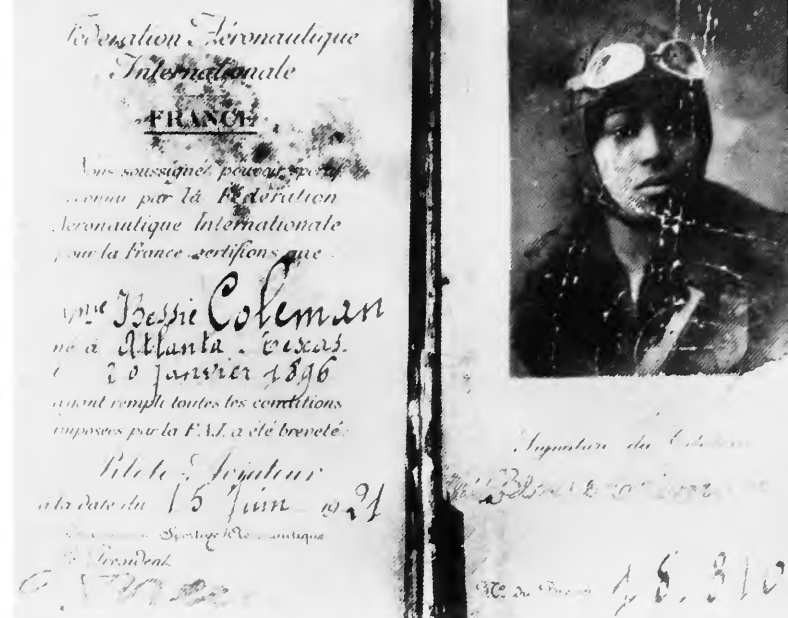 Fédération Aéronautique
Internationale
FRANCE
Nous soussignés pouvoir sportif
reconnu par la Fédération
Aéronautique Internationale
pour la France certifions que :
Mme Bessie Coleman
né à Atlanta, Texas.
20 Janvier 1896
ayant rempli toutes les conditions
imposées par la F.A.I. a été breveté :
Pilote Aviateur
à la date du 15 Juin 1921
Sportive
Le Président
Signature du Titulaire
Bessie Coleman
No du Brevet 18.310